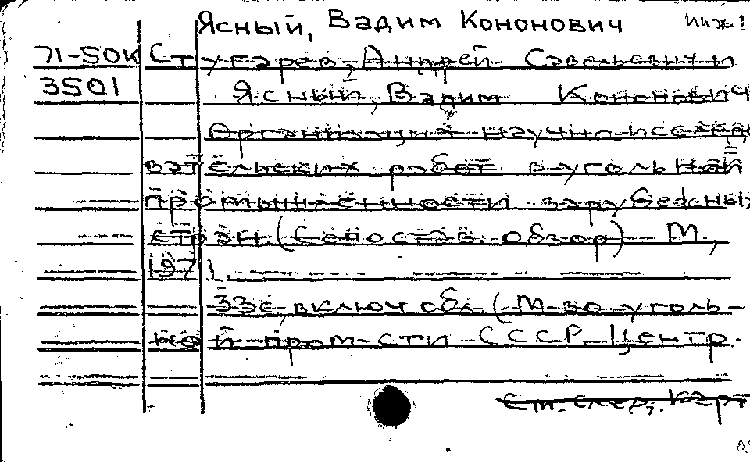 Ясный, Вадим Кононович
71-50К Стугарев, Андрей Савельевич и
3501 Ясный, Вадим Кононович
Организация научно-исследо-
вательских работ в угольной
промышленности зарубежных
стран. (Сопостав. обзор) М.,
1971.
33 с. включ. обл. (М-во уголь-
ной пром-сти СССР. Центр.
См. след. карт